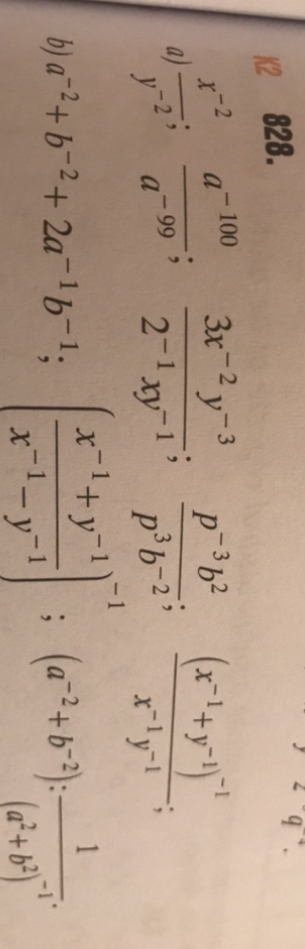 y z q⁻⁴.
K2 828.
a) x⁻²/y⁻²; a⁻¹⁰⁰/a⁻⁹⁹; 3x⁻²y⁻³/2⁻¹xy⁻¹; p⁻³b²/p³b⁻²; (x⁻¹+y⁻¹)⁻¹/x⁻¹y⁻¹;
b) a⁻²+b⁻²+2a⁻¹b⁻¹; ((x⁻¹+y⁻¹)/(x⁻¹−y⁻¹))⁻¹; (a⁻²+b⁻²): 1/(a²+b²)⁻¹.